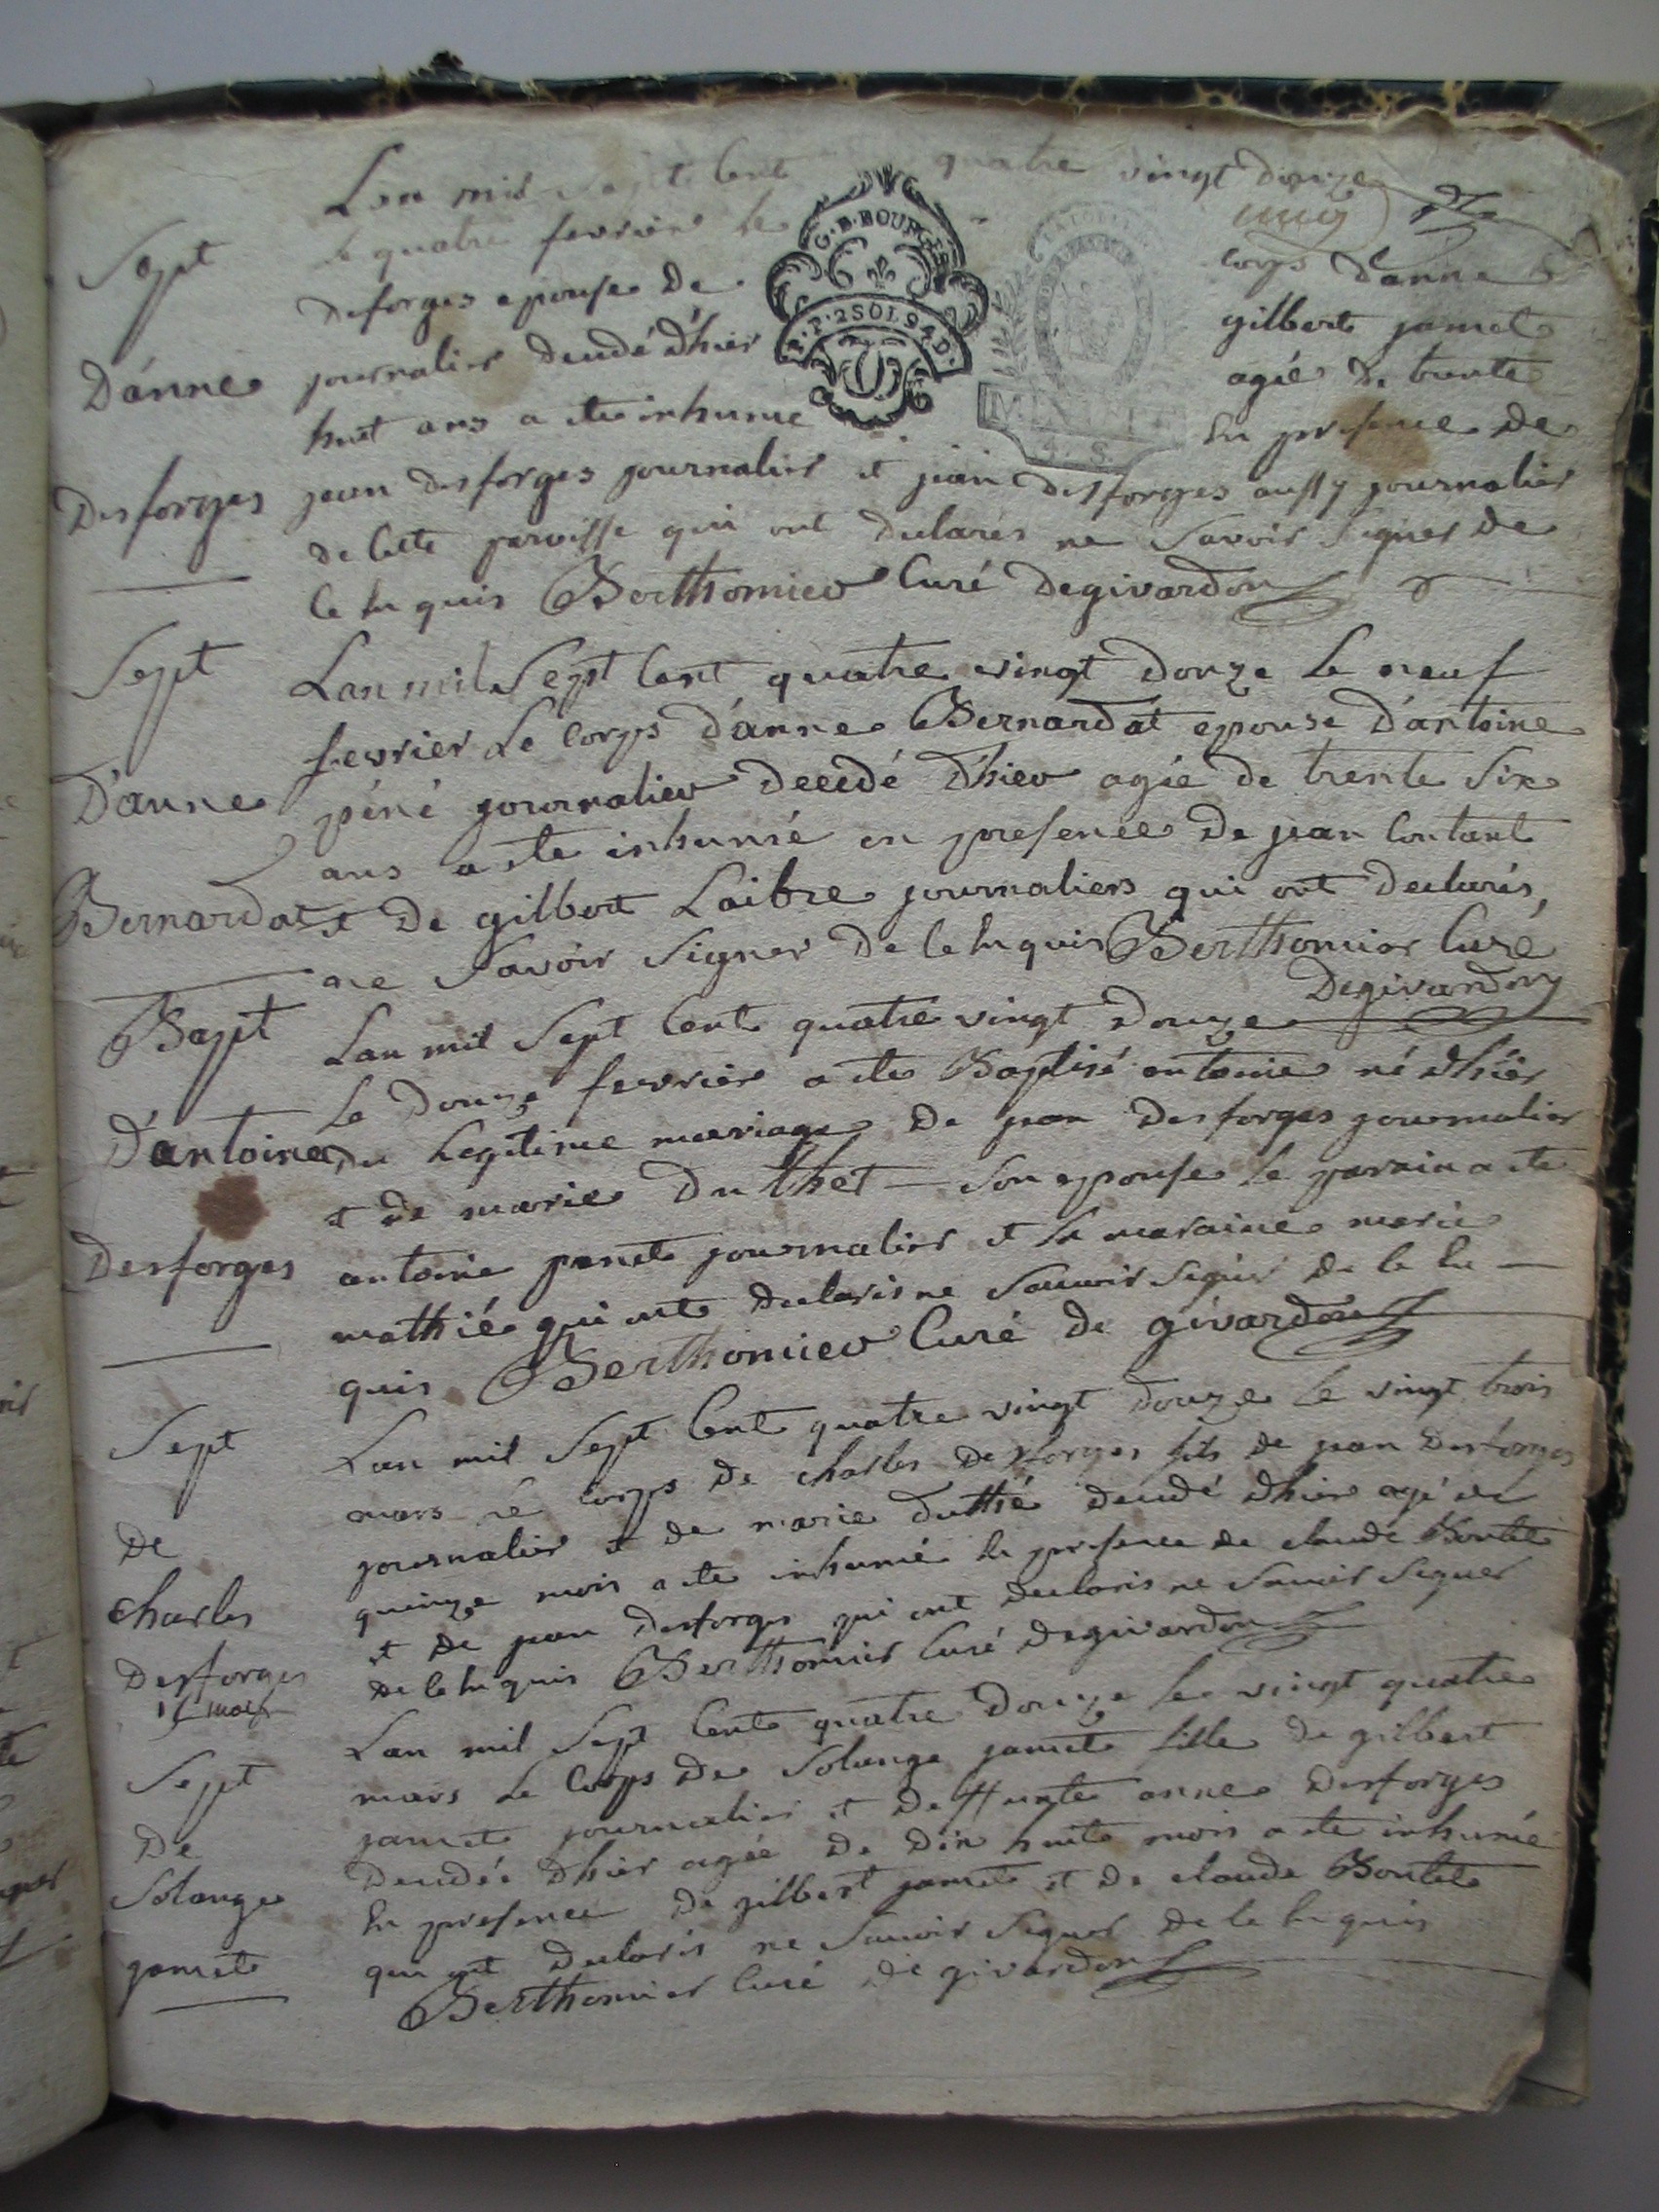 Lan mil Sept Cent quatre vingt douze
Sept
le quatre fevrier le corps d'anne
G. D. BOURGES
desforges epouse de gilbert jamet
D'anne
journalier decedé d'hier agée de trente
P. P. 2 SOL 9 4 D.
huit ans a ete inhumé En presence de
Desforges
jean desforges journalier et jean desforges aussy journalier
de cette paroisse qui ont declarés ne Savoir Signer de
ce En quis Berthomier Curé degivardon
Sept
Lan mil Sept Cent quatre vingt douze le neuf
fevrier Le Corps d'anne Bernardat epouse d'antoine
D'anne
péné journalier decedé d'hier agée de trente Six
ans a ete inhumé en presence de jean Contant
Bernardat
et De gilbert Laibre journaliers qui ont declarés,
ne Savoir Signer De ce En quis Berthomier Curé
Degivardon
Bapt
Lan mil Sept Cent quatre vingt Douze
le Douze fevrier a ete Baptisé antoine né d'hier
D'antoine
du Legitime mariage de jean Desforges journalier
et de marie Duthet — Son epouse le parain a ete
Desforges
antoine penet journalier et la maraine marie
mathié qui ont declaris ne Savoir Signer de ce En —
quis Berthomier Curé de givardon
Sept
Lan mil Sept Cent quatre vingt douze le vingt trois
mars le Corps de charles Desforges fils de jean Desforges
De
journalier et de marie Duthé decedé d'hier agé de
quinze mois a ete inhumé En presence de claude Boutet
charles
et De jean Desforges qui ont declaris ne Savoir Signer
Desforges
de ce En quis Berthomier Curé degivardon
15 mois
Sept
Lan mil Sept Cent quatre Douze le vingt quatre
mars Le Corps De Solange jamet fille de gilbert
De
jamet journalier et Deffunte anne Desforges
Solange
decedée d'hier agée De Dix huit mois a ete inhumée
En presence De gilbert jamet et De claude Boutet
jamet
qui ont Declaris ne Savoir Signer de ce En quis
Berthomier Curé de givardon